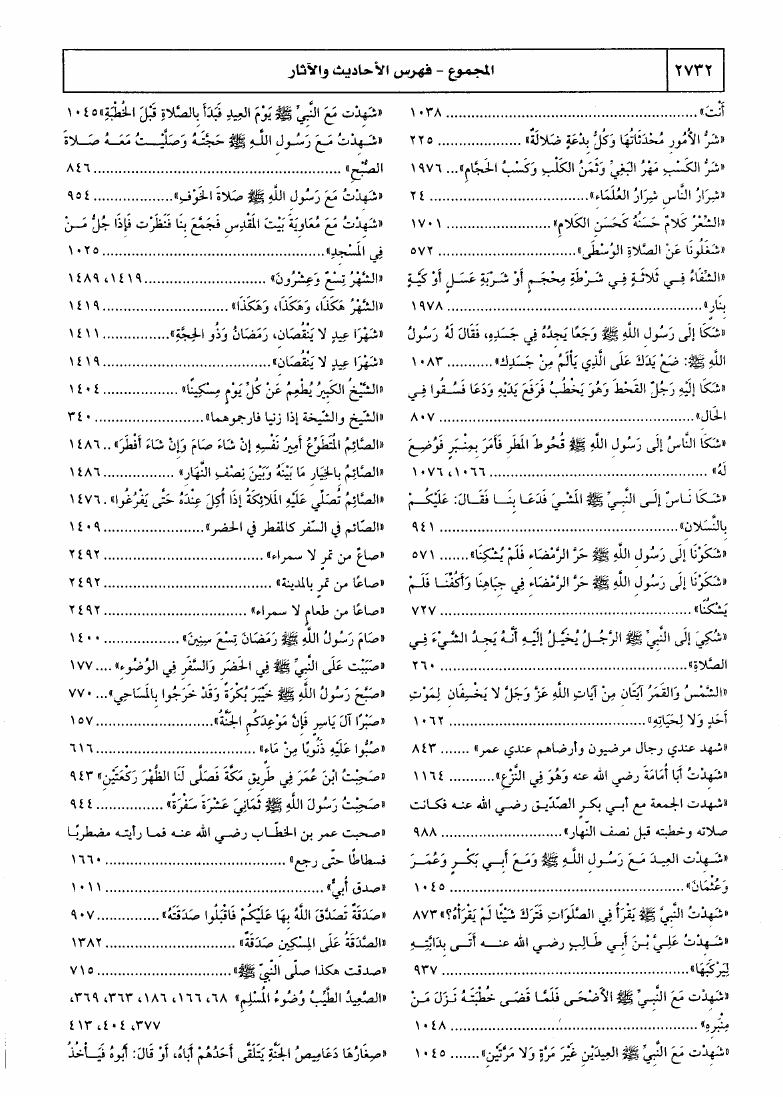 ٢٧٣٢
المجموع - فهرس الأحاديث والآثار
أَنْتَ» ١٠٣٨
«شَرُّ الأُمُورِ مُحْدَثَاتُهَا وَكُلُّ بِدْعَةٍ ضَلالَةٌ» ٢٢٥
«شَرُّ الكَسْبِ مَهْرُ البَغِيِّ وَثَمَنُ الكَلْبِ وَكَسْبُ الحَجَّامِ» ١٩٧٦
«شِرَارُ النَّاسِ شِرَارُ العُلَمَاءِ» ٢٤
«الشِّعْرُ كَلامٌ حَسَنُهُ كَحَسَنِ الكَلامِ» ١٧٠١
«شَغَلُونَا عَنْ الصَّلاةِ الوُسْطَى» ٥٧٢
«الشِّفَاءُ فِي ثَلاثَةٍ فِي شَرْطَةِ مِحْجَمٍ أَوْ شَرْبَةِ عَسَلٍ أَوْ كَيَّةٍ
بِنَارٍ» ١٩٧٨
«شَكَا إِلَى رَسُولِ اللهِ ﷺ وَجَعًا يَجِدُهُ فِي جَسَدِهِ، فَقَالَ لَهُ رَسُولُ
اللهِ ﷺ: ضَعْ يَدَكَ عَلَى الَّذِي يَأْلَمُ مِنْ جَسَدِكَ» ١٠٨٣
«شَكَا إِلَيْهِ رَجُلٌ القَحْطَ وَهُوَ يَخْطُبُ فَرَفَعَ يَدَيْهِ وَدَعَا فَسُقُوا فِي
الحَالِ» ٨٠٧
«شَكَا النَّاسُ إِلَى رَسُولِ اللهِ ﷺ قُحُوطَ المَطَرِ فَأَمَرَ بِمِنْبَرٍ فَوُضِعَ
لَهُ» ١٠٦٦، ١٠٧٦
«شَكَا نَاسٌ إِلَى النَّبِيِّ ﷺ المَشْيَ فَدَعَا بِنَا فَقَالَ: عَلَيْكُمْ
بِالنَّسَلانِ» ٩٤١
«شَكَوْنَا إِلَى رَسُولِ اللهِ ﷺ حَرَّ الرَّمْضَاءِ فَلَمْ يُشْكِنَا» ٥٧١
«شَكَوْنَا إِلَى رَسُولِ اللهِ ﷺ حَرَّ الرَّمْضَاءِ فِي جِبَاهِنَا وَأَكُفِّنَا فَلَمْ
يُشْكِنَا» ٧٢٧
«شُكِيَ إِلَى النَّبِيِّ ﷺ الرَّجُلُ يُخَيَّلُ إِلَيْهِ أَنَّهُ يَجِدُ الشَّيْءَ فِي
الصَّلاةِ» ٢٦٠
«الشَّمْسُ وَالقَمَرُ آيَتَانِ مِنْ آيَاتِ اللهِ عَزَّ وَجَلَّ لا يَخْسِفَانِ لِمَوْتِ
أَحَدٍ وَلا لِحَيَاتِهِ» ١٠٦٢
«شهد عندي رجال مرضيون وأرضاهم عندي عمر» ٨٤٣
«شَهِدْتُ أَبَا أُمَامَةَ رضي الله عنه وَهُوَ فِي النَّزْعِ» ١١٦٤
«شهدت الجمعة مع أبي بكر الصّدّيق رضي الله عنه فكانت
صلاته وخطبته قبل نصف النّهار» ٩٨٨
«شَهِدْتُ العِيدَ مَعَ رَسُولِ اللهِ ﷺ وَمَعَ أَبِي بَكْرٍ وَعُمَرَ
وَعُثْمَانَ» ١٠٤٥
«شَهِدْتُ النَّبِيَّ ﷺ يَقْرَأُ فِي الصَّلَوَاتِ فَتَرَكَ شَيْئًا لَمْ يَقْرَأْهُ؟» ٨٧٣
«شَهِدْتُ عَلِيَّ بْنَ أَبِي طَالِبٍ رضي الله عنه أَتَى بِدَابَّتِهِ
لِيَرْكَبَهَا» ٩٣٧
«شَهِدْتُ مَعَ النَّبِيِّ ﷺ الأَضْحَى فَلَمَّا قَضَى خُطْبَتَهُ نَزَلَ مِنْ
مِنْبَرِهِ» ١٠٤٨
«شَهِدْتُ مَعَ النَّبِيِّ ﷺ العِيدَيْنِ غَيْرَ مَرَّةٍ وَلا مَرَّتَيْنِ» ١٠٤٥
«شَهِدْتُ مَعَ النَّبِيِّ ﷺ يَوْمَ العِيدِ فَبَدَأَ بِالصَّلاةِ قَبْلَ الخُطْبَةِ» ١٠٤٥
«شَهِدْتُ مَعَ رَسُولِ اللهِ ﷺ حَجَّتَهُ وَصَلَّيْتُ مَعَهُ صَلاةَ
الصُّبْحِ» ٨٤٦
«شَهِدْتُ مَعَ رَسُولِ اللهِ ﷺ صَلاةَ الخَوْفِ» ٩٥٤
«شَهِدْتُ مَعَ مُعَاوِيَةَ بَيْتَ المَقْدِسِ فَجَمَّعَ بِنَا فَنَظَرْتُ فَإِذَا جُلُّ مَنْ
فِي المَسْجِدِ» ١٠٢٥
«الشَّهْرُ تِسْعٌ وَعِشْرُونَ» ١٤١٩، ١٤٨٩
«الشَّهْرُ هَكَذَا، وَهَكَذَا، وَهَكَذَا» ١٤١٩
«شَهْرَا عِيدٍ لا يَنْقُصَانِ، رَمَضَانُ وَذُو الحِجَّةِ» ١٤١١
«شَهْرَا عِيدٍ لا يَنْقُصَانِ» ١٤١٩
«الشَّيْخُ الكَبِيرُ يُطْعِمُ عَنْ كُلِّ يَوْمٍ مِسْكِينًا» ١٤٠٤
«الشّيخ والشّيخة إذا زنيا فارجموهما» ٣٤٠
«الصَّائِمُ المُتَطَوِّعُ أَمِيرُ نَفْسِهِ إِنْ شَاءَ صَامَ وَإِنْ شَاءَ أَفْطَرَ» ١٤٨٦
«الصَّائِمُ بِالخِيَارِ مَا بَيْنَهُ وَبَيْنَ نِصْفِ النَّهَارِ» ١٤٨٦
«الصَّائِمُ تُصَلِّي عَلَيْهِ المَلائِكَةُ إِذَا أُكِلَ عِنْدَهُ حَتَّى يَفْرُغُوا» ١٤٧٦
«الصّائم في السّفر كالمفطر في الحضر» ١٤٠٩
«صاعٌ من تمرٍ لا سمراء» ٢٤٩٢
«صاعًا من تمرٍ بالمدينة» ٢٤٩٢
«صاعًا من طعامٍ لا سمراء» ٢٤٩٢
«صَامَ رَسُولُ اللهِ ﷺ رَمَضَانَ تِسْعَ سِنِينَ» ١٤٠٠
«صَبَبْتُ عَلَى النَّبِيِّ ﷺ فِي الحَضَرِ وَالسَّفَرِ فِي الوُضُوءِ» ١٧٧
«صَبَّحَ رَسُولُ اللهِ ﷺ خَيْبَرَ بُكْرَةً وَقَدْ خَرَجُوا بِالمَسَاحِي» ٧٧٠
«صَبْرًا آلَ يَاسِرٍ فَإِنَّ مَوْعِدَكُم الجَنَّةُ» ١٥٧
«صُبُّوا عَلَيْهِ ذَنُوبًا مِنْ مَاءٍ» ٦١٦
«صَحِبْتُ ابْنَ عُمَرَ فِي طَرِيقِ مَكَّةَ فَصَلَّى لَنَا الظُّهْرَ رَكْعَتَيْنِ» ٩٤٣
«صَحِبْتُ رَسُولَ اللهِ ﷺ ثَمَانِيَ عَشْرَةَ سَفْرَةً» ٩٤٤
«صحبت عمر بن الخطّاب رضي الله عنه فما رأيته مضطربًا
فسطاطًا حتّى رجع» ١٦٦٠
«صدق أبيٌّ» ١٠١١
«صَدَقَةٌ تَصَدَّقَ اللهُ بِهَا عَلَيْكُمْ فَاقْبَلُوا صَدَقَتَهُ» ٩٠٧
«الصَّدَقَةُ عَلَى المِسْكِينِ صَدَقَةٌ» ١٣٨٢
«صدقت هكذا صلّى النّبيّ ﷺ» ٧١٥
«الصَّعِيدُ الطَّيِّبُ وُضُوءُ المُسْلِمِ» ٦٨، ١٦٦، ١٨٦، ٣٦٣، ٣٦٩،
٣٧٧، ٤٠٤، ٤١٣
«صِغَارُهَا دَعَامِيصُ الجَنَّةِ يَتَلَقَّى أَحَدُهُمْ أَبَاهُ، أَوْ قَالَ: أَبُوهُ فَيَأْخُذُ